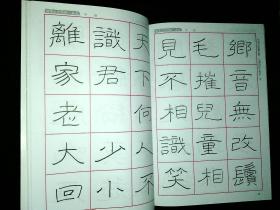 天下何人不
識君 少小
離家老大回
鄉音無改鬢
毛摧兒童相
見不相識笑